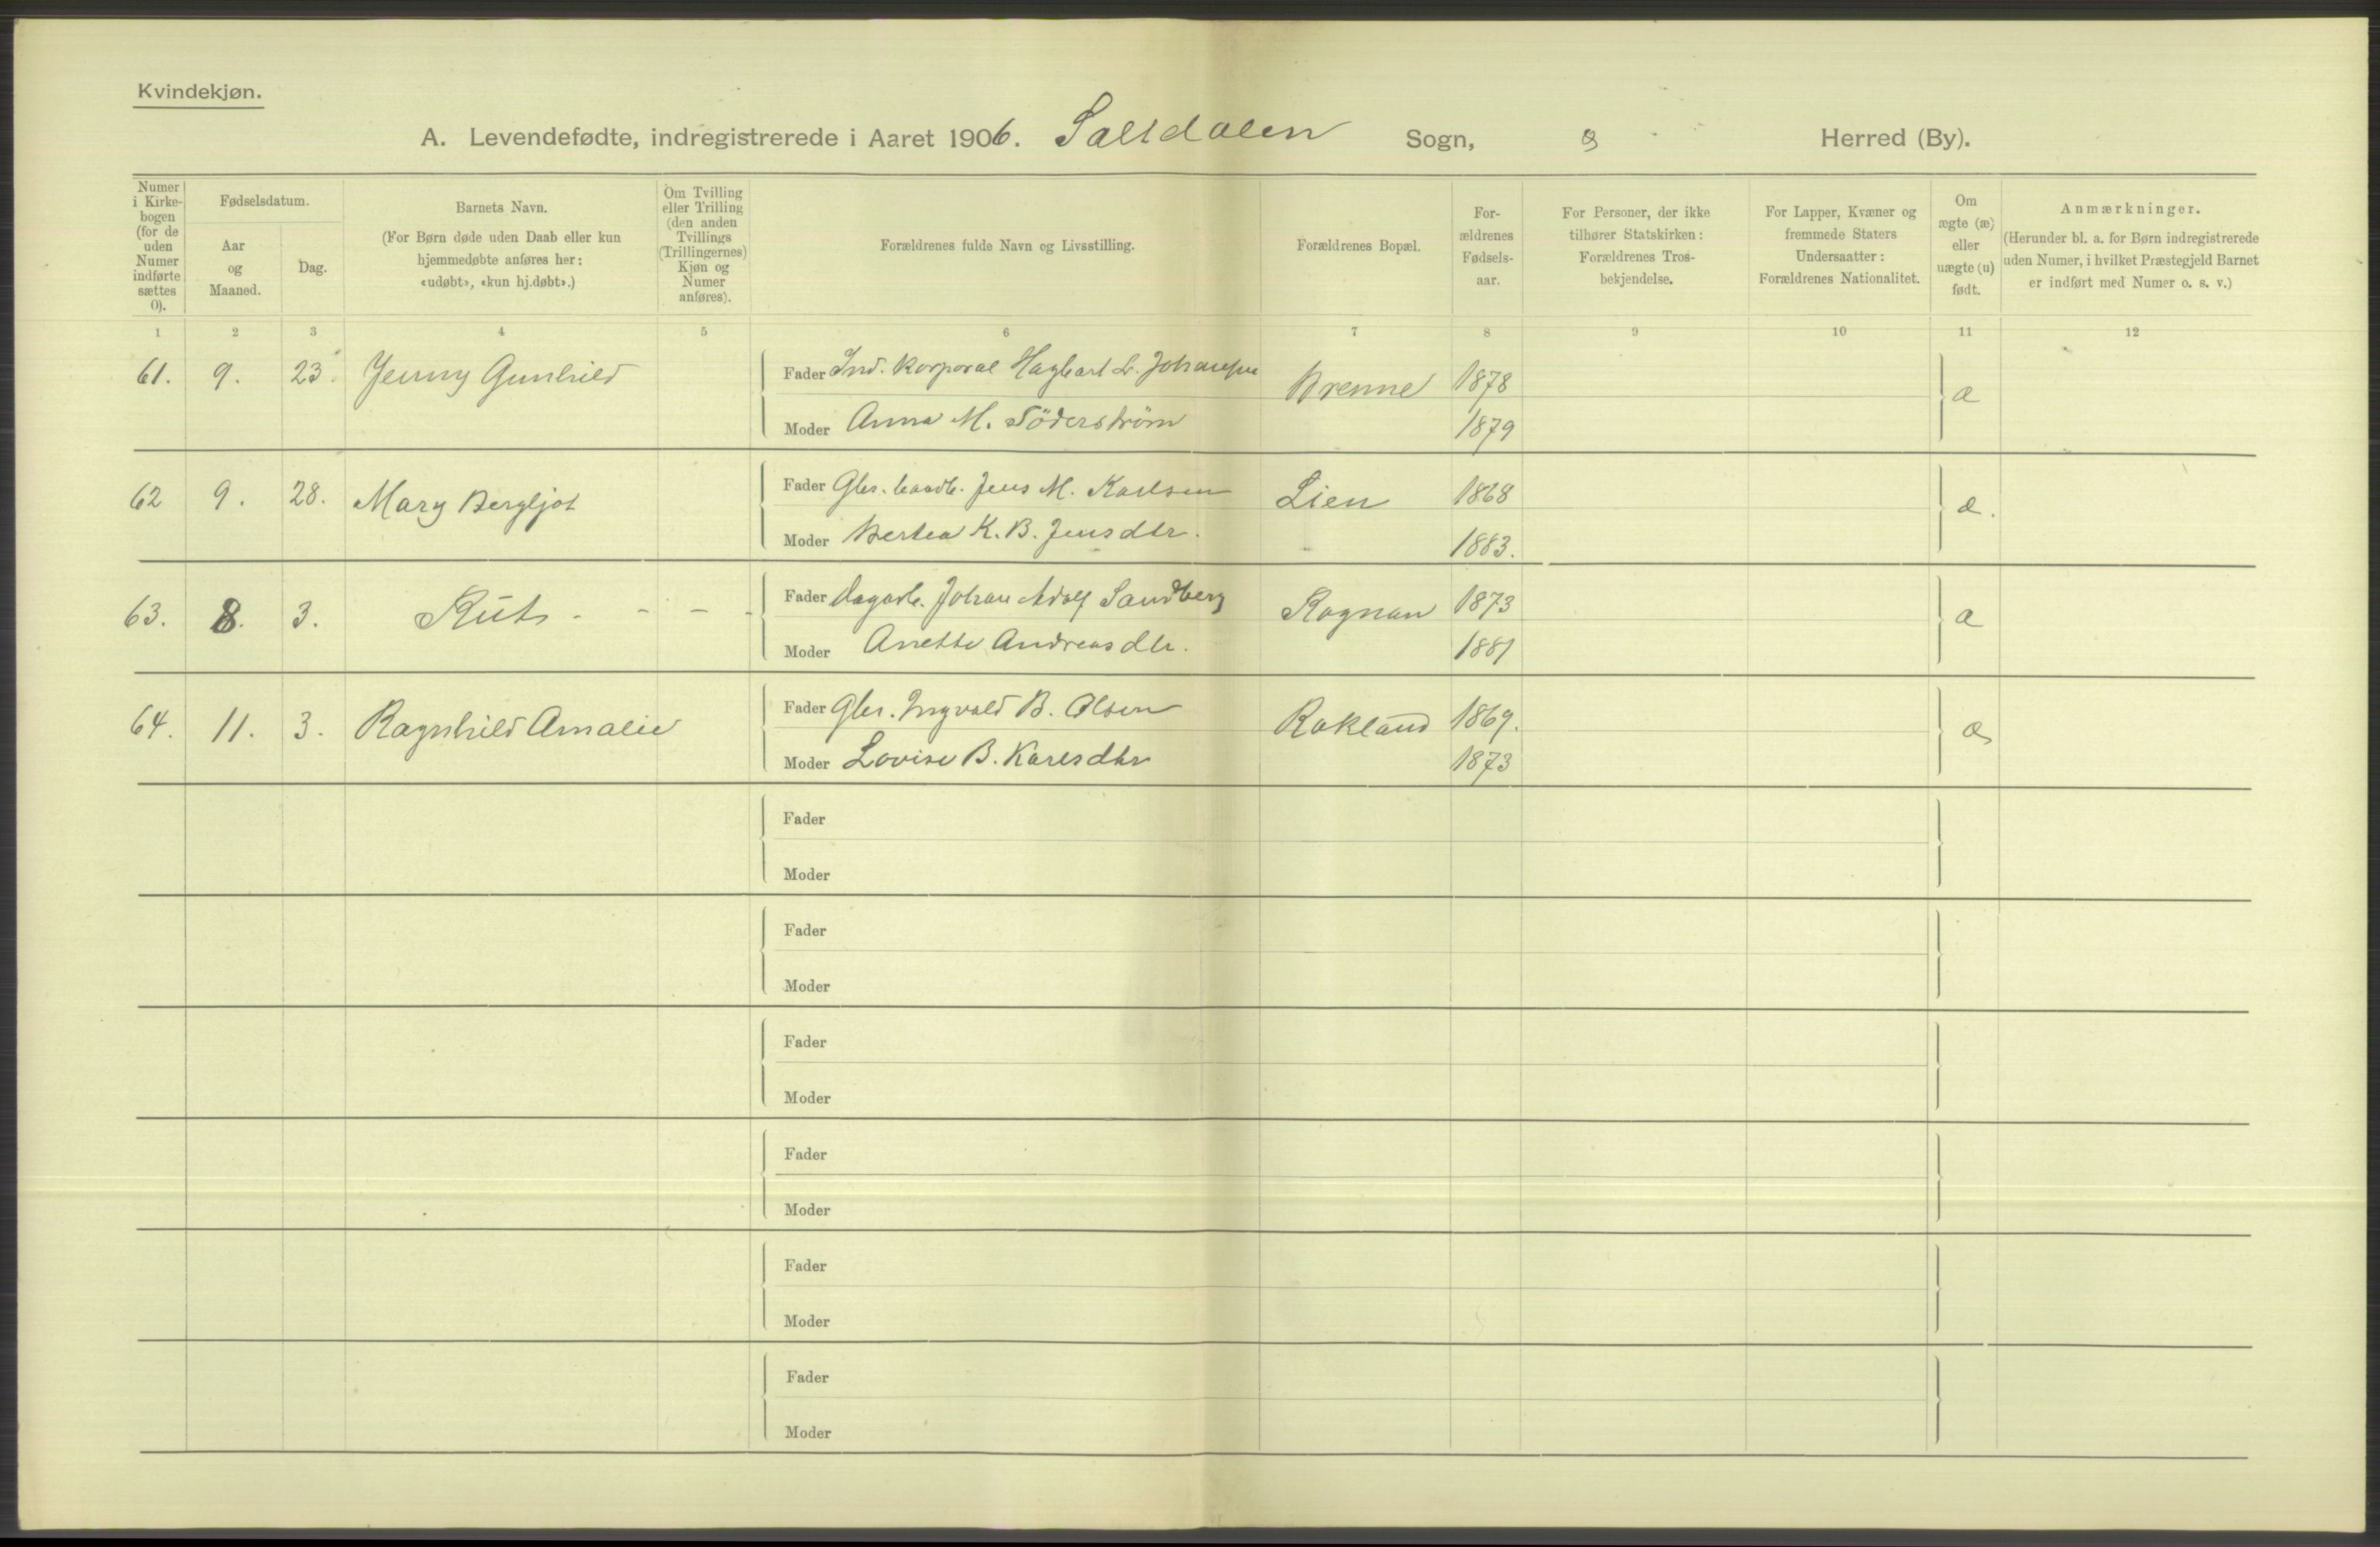 Kvindekjøn.
A. Levendefødte, indregistrerede i Aaret 1906. Saltdalen Sogn, Herred (By).
Numer i Kirkebogen (for de uden Numer indførte sættes 0).
Fødselsdatum.
Aar og Maaned.
Dag.
Barnets Navn.
(For Børn døde uden Daab eller kun hjemmedøbte anføres her: «udøbt», «kun hj.døbt».)
Om Tvilling eller Trilling (den anden Tvillings (Trillingernes) Kjøn og Numer anføres).
Forældrenes fulde Navn og Livsstilling.
Forældrenes Bopæl.
Forældrenes Fødselsaar.
For Personer, der ikke tilhører Statskirken: Forældrenes Trosbekjendelse.
For Lapper, Kvæner og fremmede Staters Undersaatter: Forældrenes Nationalitet.
Om ægte (æ) eller uægte (u) født.
Anmærkninger.
(Herunder bl. a. for Børn indregistrerede uden Numer, i hvilket Præstegjeld Barnet er indført med Numer o. s. v.)
1 2 3 4 5 6 7 8 9 10 11 12
61. 9. 23. Jenny Gunhild Fader Ind. Korporal Hagbart L. Johansen Brenne 1878 æ
Moder Anna M. Söderstrøm 1879
62 9. 28. Mary Bergljot Fader Gbr. Jens M. Karlsen Lien 1868 æ.
Moder Bertea K. B. Jensdtr. 1883.
63. 8. 3. Rut - - - Fader Dagarb. Johan Adolf Sandberg Rognan 1873 æ
Moder Anette Andreasdtr. 1881
64. 11. 3. Ragnhild Amalie Fader Gbr. Ingvald B. Olsen Rokland 1869. æ
Moder Lovise B. Karlsdtr 1873
Fader
Moder
Fader
Moder
Fader
Moder
Fader
Moder
Fader
Moder
Fader
Moder